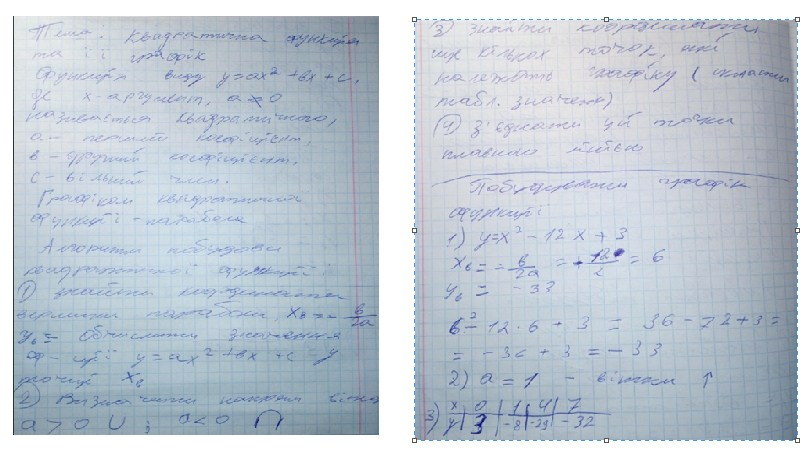 Тема: Квадратична функція
та її графік
Функція виду y=ax² + bx + c,
де x-аргумент, a≠0
називається квадратичною,
a - перший коефіцієнт,
b - другий коефіцієнт,
c - вільний член.
Графіком квадратичної
функції - парабола
Алгоритм побудови
квадратичної функції
1) знайти координати
вершини параболи, xв = - b/2a
yв = Обчислити значення
ф-ції y = ax² + bx + c у
точці xв
2) Визначити напрям віток
a > 0 ∪ ; a < 0 ∩
3) знайти координати
ще кількох точок, які
належать графіку (скласти
табл. значень)
4) З'єднати ці точки
плавною лінією
Побудувати графік
функції
1) y=x² - 12x + 3
xв = - b/2a = - -12/2 = 6
yв = -33
6² - 12·6 + 3 = 36 - 72 + 3 =
= -36 + 3 = -33
2) a = 1 - вітки ↑
3) x | 0 | 1 | 4 | 7
y | 3 | -8 | -29 | -32